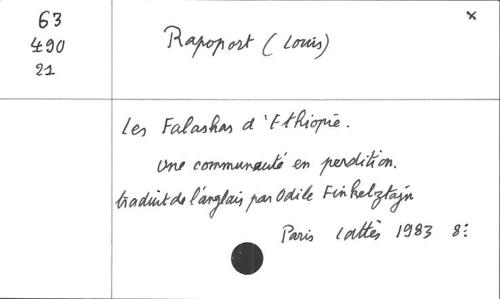 63
490
21
×
Rapoport (Louis)
Les Falashas d'Ethiopie.
Une communauté en perdition.
traduit de l'anglais par Odile Finkelztajn
Paris Lattès 1983 8: